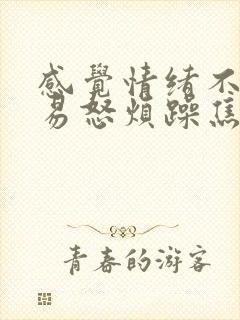 感覺情绪不
易怒煩躁焦
青春的游客